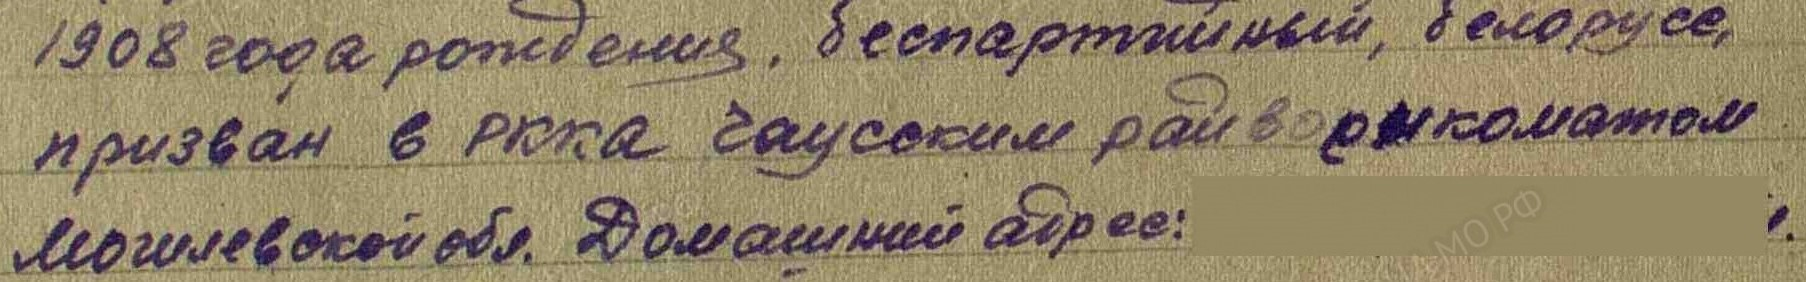 1908 года рождения, беспартийный, белорусс,
призван в РККА Чаусским райвоенкоматом
Могилевской обл. Домашний адрес: